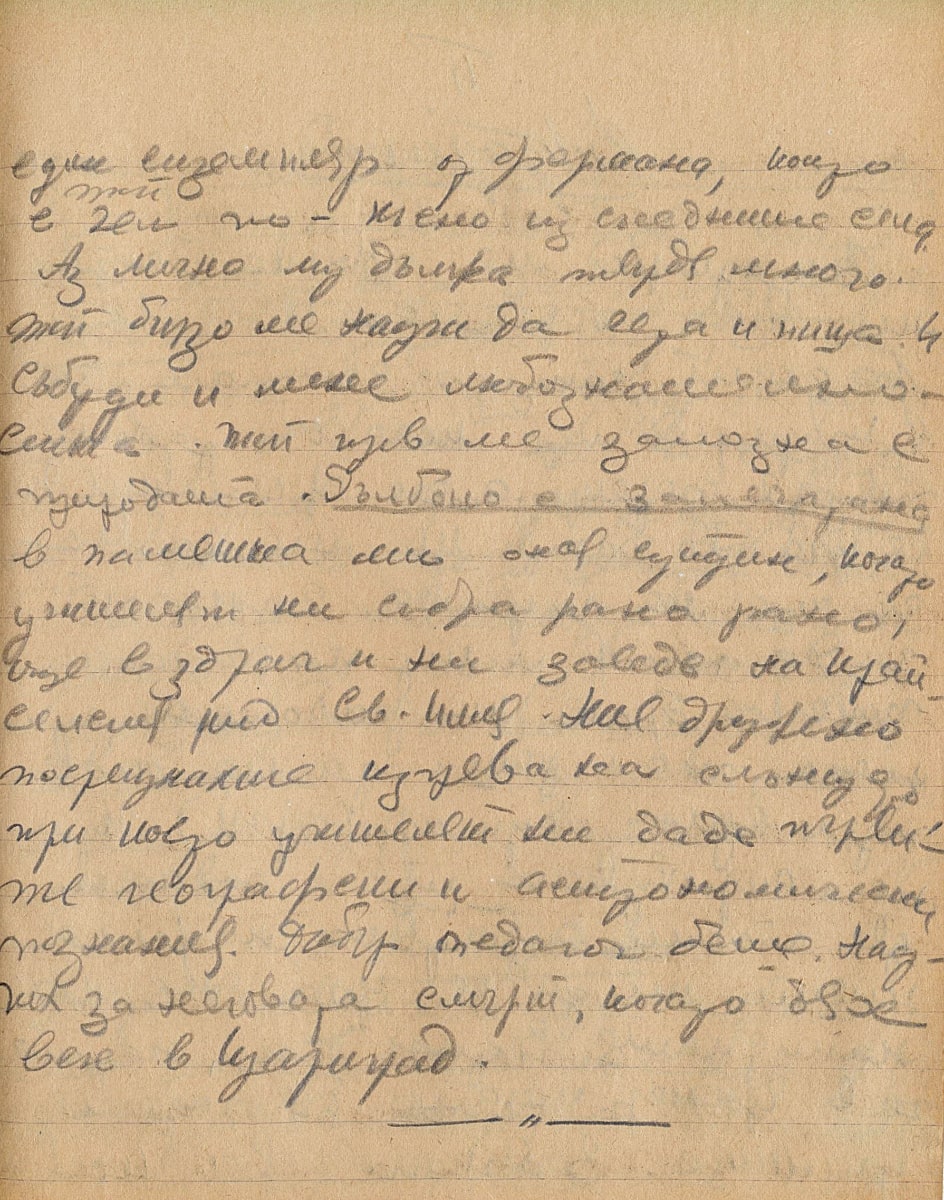 един екземпляр от фермана, който
той
е чел по-
Аз лично му дължа твърде много.
Той бързо ме научи да чета и пиша и
събуди и мене любознателно-
стта. Той пръв ме запозна с
природата. Дълбоко е запечатано
в паметта ми онова, когато
учителят ни събра рано рано,
още в здрач и ни заведе на край
селския рид Св. Илия. Ние дружно
посрещнахме изгрева на слънцето
при което учителят ни даде първи-
те географски и астрономически
познания. Добър педагог беше. Нау-
чих за неговата смърт, когато бях
вече в Цариград.
"